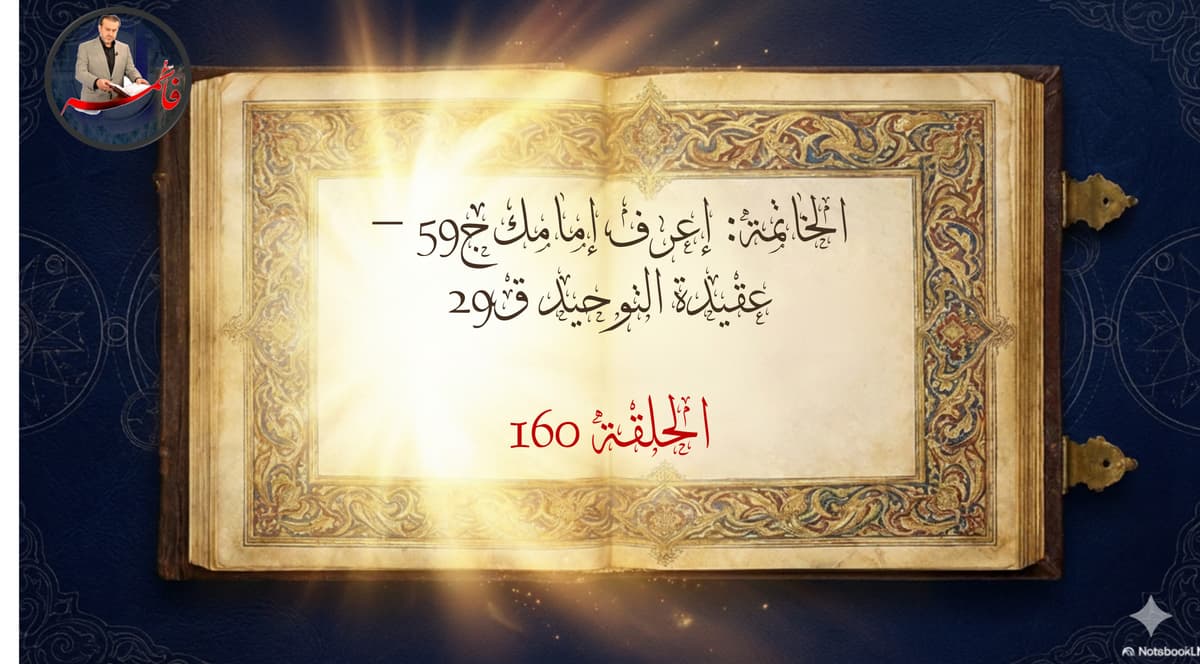 فاطمة
الخاتمة: إعرف إمامك ج59 –
عقيدة التوحيد ق29
الحلقة 160
NotsbookL